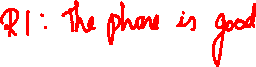 R1: The phone is good